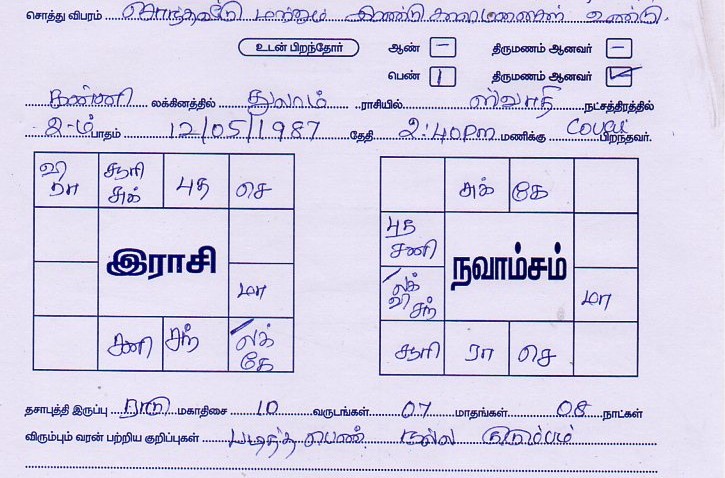 சொத்து விபரம் சொந்தவீடு மற்றும் இரண்டு உண்டு.
உடன் பிறந்தோர் ஆண் – திருமணம் ஆனவர் –
பெண் 1 திருமணம் ஆனவர் ✓
கன்னி லக்கினத்தில் துலாம் ராசியில் ஸ்வாதி நட்சத்திரத்தில்
2-ம் பாதம் 12/05/1987 தேதி 2:40pm மணிக்கு பிறந்தவர்.
வி ரா சூரி சுக் புத செ
இராசி
மா
சனி சந் லக் கே
சுக் கே
புத சனி
நவாம்சம்
லக் வி சந் மா
சூரி ரா செ
தசாபுத்தி இருப்பு ராகு மகாதிசை 10 வருடங்கள் 07 மாதங்கள் 08 நாட்கள்
விரும்பும் வரன் பற்றிய குறிப்புகள் படித்த பெண் நல்ல குடும்பம்